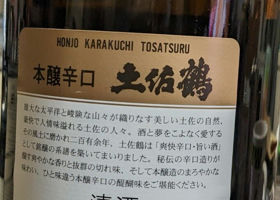 HONJO KARAKUCHI TOSATSURU
本醸辛口 土佐鶴
雄大な太平洋と峻険な山々が織りなす美しい土佐の自然、
豪快で人情味溢れる土佐の人々。酒と夢をこよなく愛する
その風土に磨かれ二百有余年、土佐鶴は「爽快辛口・旨い酒」
として銘醸の系譜を築いてまいりました。秘伝の辛口造りが
醸す爽やかな香りと抜群の切れ味、そして本醸造のまろやかな
味わい。ひと味違う本醸辛口の醍醐味をご堪能ください。
清酒